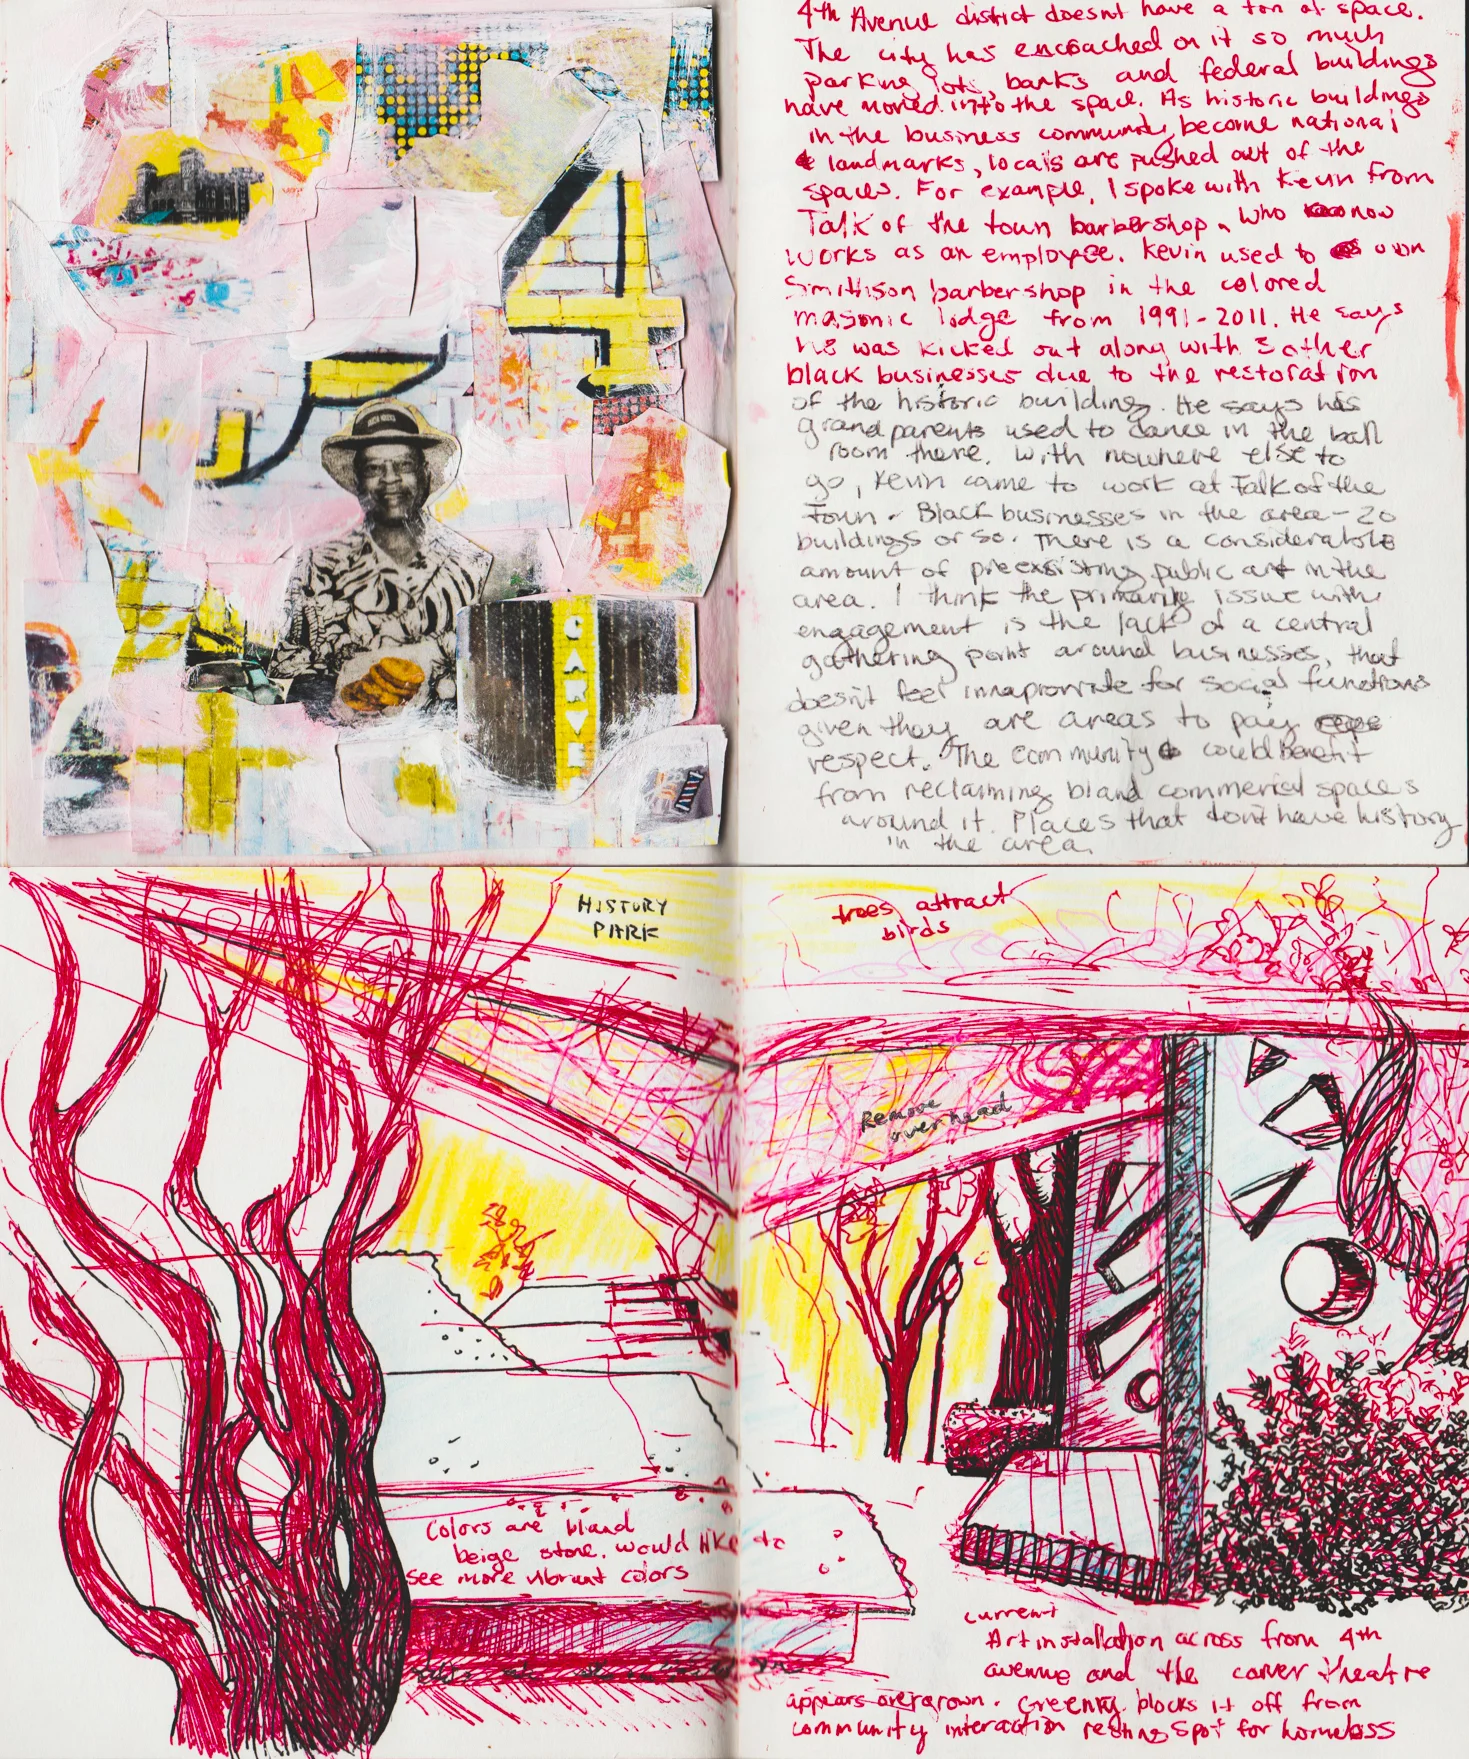 4
CARVE
4th Avenue district doesnt have a ton of space.
The city has encroached on it so much
parking lots, banks and federal buildings
have moved into the space. As historic buildings
in the business community become national
landmarks, locals are pushed out of the
spaces. For example, I spoke with Kevin from
Talk of the town barbershop, who now
works as an employee. Kevin used to own
Smithson barbershop in the colored
masonic lodge from 1991-2011. He says
he was kicked out along with 3 other
black businesses due to the restoration
of the historic building. He says his
grandparents used to dance in the ball
room there. With nowhere else to
go, Kevin came to work at Talk of the
Town. Black businesses in the area - 20
buildings or so. There is a considerable
amount of preexisting public art in the
area. I think the primary issue with
engagement is the lack of a central
gathering point around businesses, that
doesn't feel innapropriate for social functions
given they are areas to pay
respect. The community could benefit
from reclaiming bland commercial spaces
around it. Places that don't have history
in the area.
HISTORY
PARK
trees attract
birds
Remove
overhead
Colors are bland
beige stone. would like to
see more vibrant colors
current
Art installation across from 4th
avenue and the carver theatre
appears overgrown. Greenery blocks it off from
community interaction resting spot for homeless